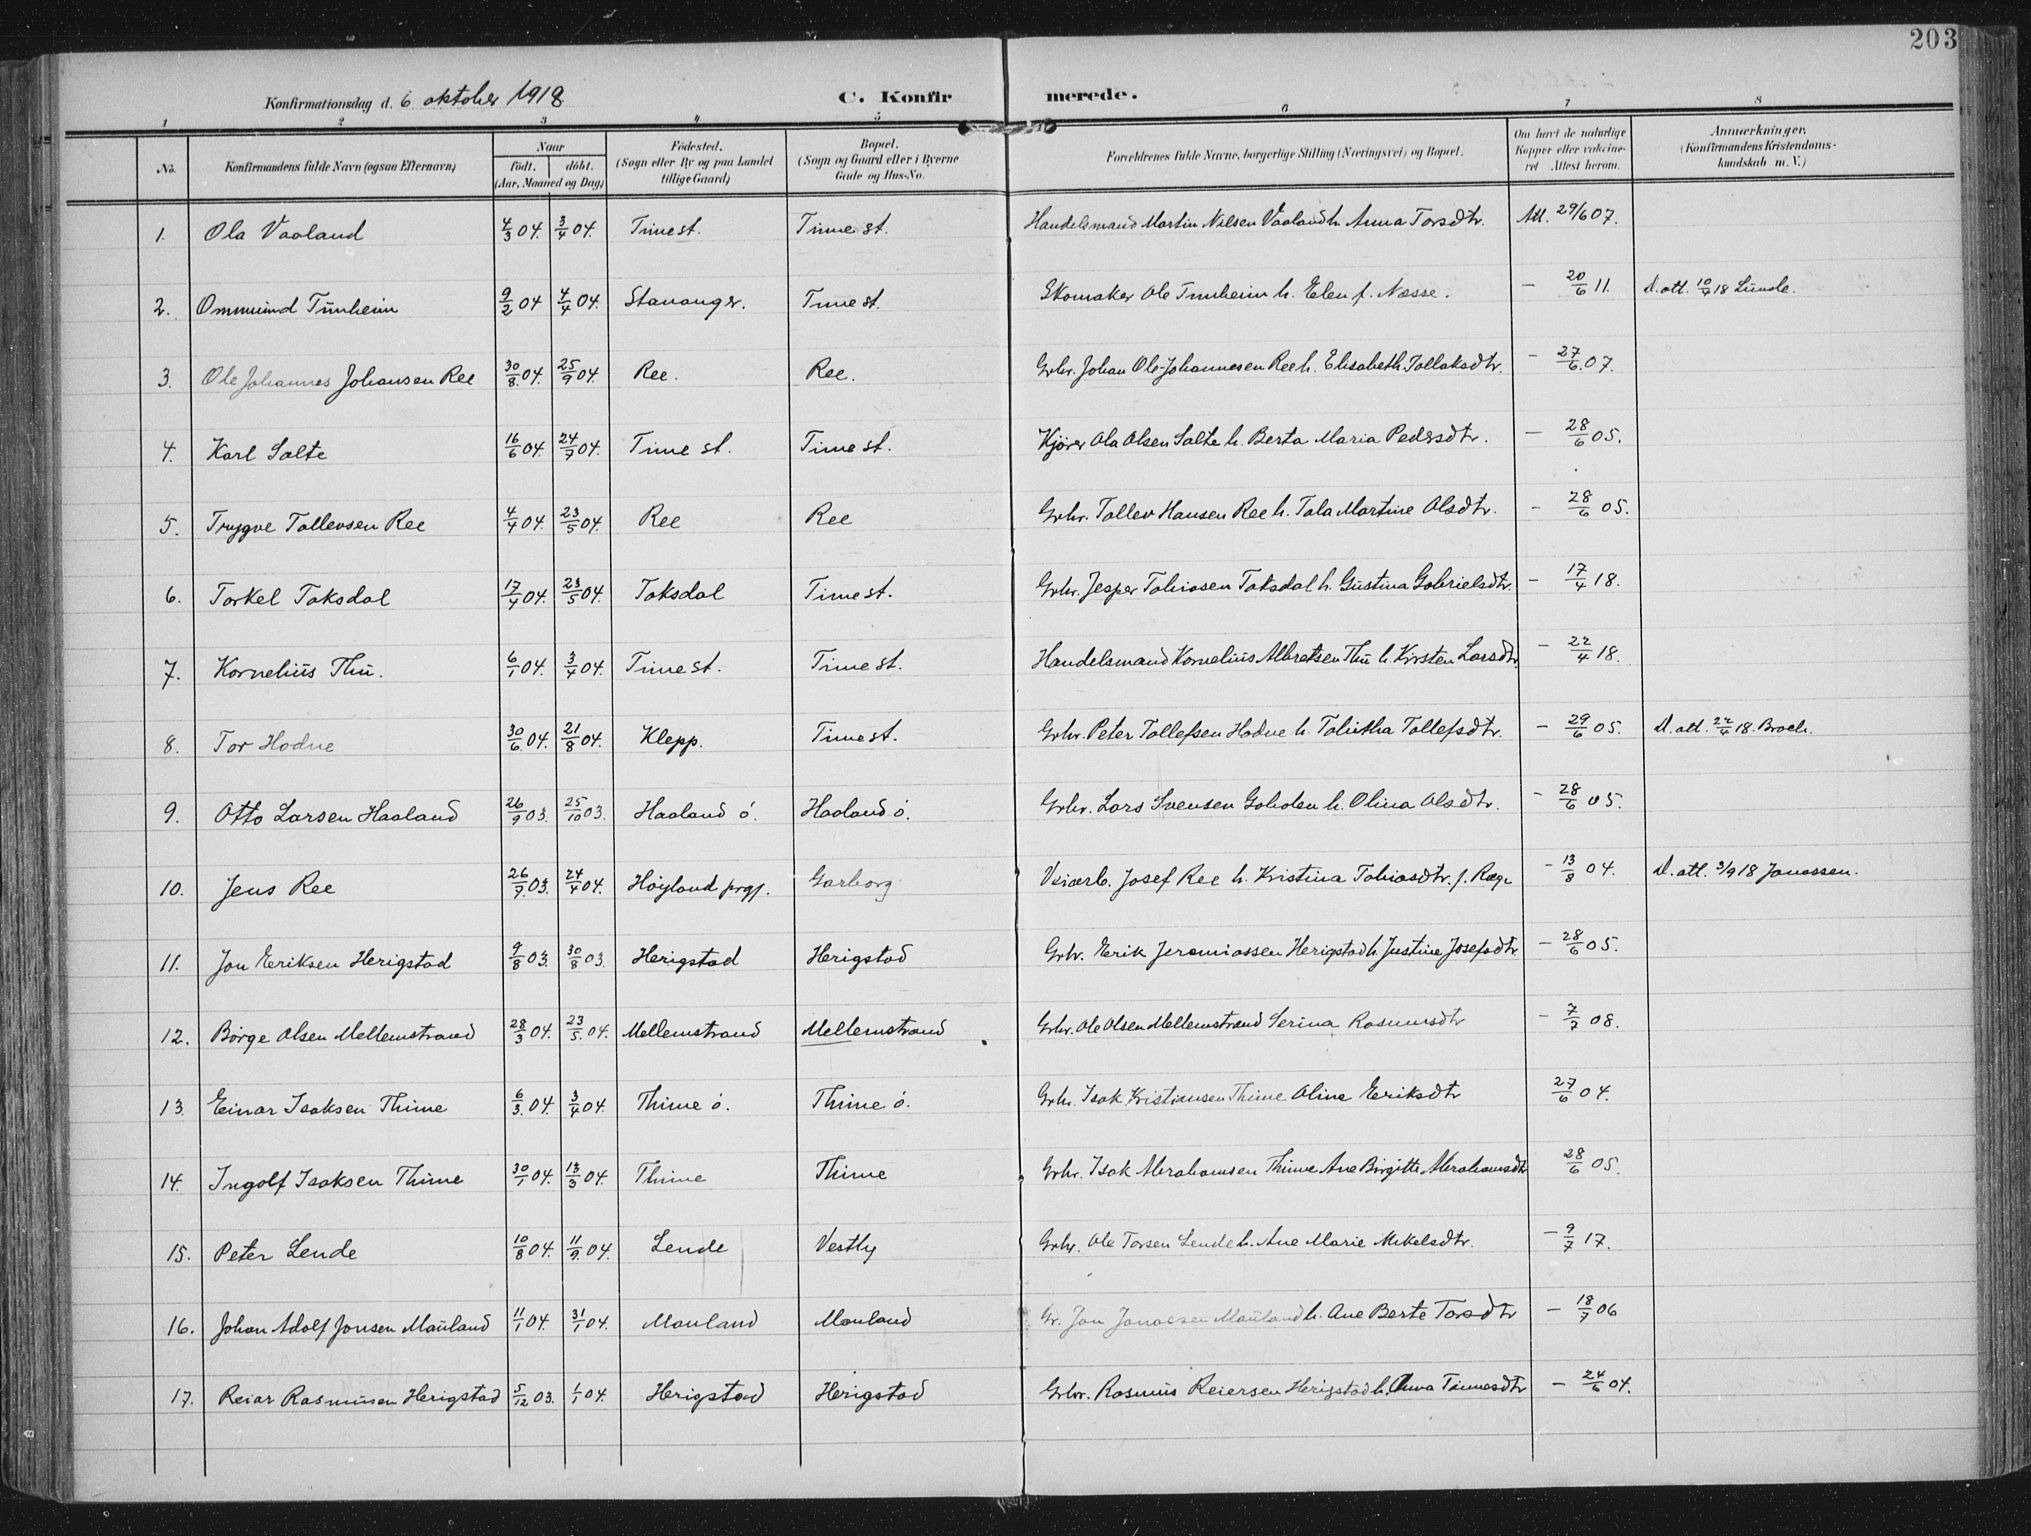 203
Konfirmationsdag d. 6 oktober 1918 C. Konfirmerede.
1 2 3 4 5 6 7 8
No. Konfirmandens fulde Navn (ogsaa Efternavn) Naar födt. döbt. (Aar, Maaned og Dag) Födested. (Sogn eller By og paa Landet tillige Gaard) Bopæl. (Sogn og Gaard eller i Byerne Gade og Hus-No. Forældrenes fulde Navne, borgerlige Stilling (Næringsvei) og Bopæl. Om havt de naturlige Kopper eller vakcineret Attest herom. Anmærkninger. (Konfirmandens Kristendomskundskab m. V.)
1. Ola Vaaland 4/3 04. 3/4 04. Time st. Time st. Handelsmand Martin Nilsen Vaaland h. Anna Torsdtr. Att. 29/6 07.
2. Ommund Tunheim 9/2 04 4/4 04. Stavanger. Time st. Skomaker Ole Tunheim h. Elen f. Næsse. — 20/6 11. D. att. 10/9 18 Lunde.
3. Ole Johannes Johansen Ree 30/8 04. 25/9 04. Ree. Ree. Grbr. Johan Ole Johannesen Ree h. Elisabeth Tollaksdtr. — 27/6 07.
4. Karl Salte 16/6 04. 24/7 04. Time st. Time st. Kjører Ola Olsen Salte h. Berta Maria Pedersdtr. — 28/6 05.
5. Trygve Tollevsen Ree 4/4 04. 23/5 04. Ree Ree Grbr. Tollev Hansen Ree h. Tala Martine Olsdtr. - 28/6 05.
6. Torkel Taksdal 17/4 04. 23/5 04. Taksdal Time st. Grbr. Jesper Tobiasen Taksdal h. Gustina Gabrielsdtr. — 17/4 18.
7. Kornelius Thu. 6/1 04. 3/4 04. Time st. Time st. Handelsmand Kornelius Albretsen Thu h. Kirsten Larsdtr. — 22/4 18.
8. Tor Hodne 30/6 04. 21/8 04. Klepp. Time st. Grbr. Peter Tollefsen Hodne h. Tabitha Tollefsdtr. — 29/6 05. D. att. 22/4 18. Broch.
9. Otto Larsen Haaland 26/9 03. 25/10 03. Haaland ö. Haaland ö. Grbr. Lars Svensen h. Olina Olsdtr. - 28/6 05.
10. Jens Ree 26/9 03. 24/4 04. Høyland prgj. Garborg h. Kristina Tobiasdtr. f. - 13/8 04. D. att. 3/9 18 Jonassen.
11. Jon Eriksen Herigstad 9/8 03. 30/8 03. Herigstad Herigstad Grbr. Erik Jeremiassen Herigstad h. Justine Josefsdtr. — 28/6 05.
12. Børge Olsen Mellemstrand 28/3 04. 23/5 04. Mellemstrand Mellemstrand Grbr. Ole Olsen Mellemstrand Serina Rasmusdtr — 7/7 08.
13. Einar Isaksen Thime 6/3 04. 3/4 04. Thime ö. Thime ö. Grbr. Isak Kristiansen Thime Oline Eriksdtr 27/6 04.
14. Ingolf Isaksen Thime 30/1 04. 13/3 04. Thime Thime Grbr. Isak Abrahamsen Thime Ane Birgitte Abrahamsdtr 28/6 05.
15. Peter Lende 10/8 04. 11/9 04. Lende Vestly Grbr. Ole Torsen Lende h. Ane Marie Mikelsdtr. — 9/7 17.
16. Johan Adolf Jonsen Mauland 11/1 04. 31/1 04. Mauland Mauland Gr. Jon Jonassen Mauland h. Ane Berte Torsdtr — 18/7 06
17. Reiar Rasmusen Herigstad 5/12 03. 1/1 04. Herigstad Herigstad Grbr. Rasmus Reiersen Herigstad h. Anna Tønnesdtr — 24/6 04.